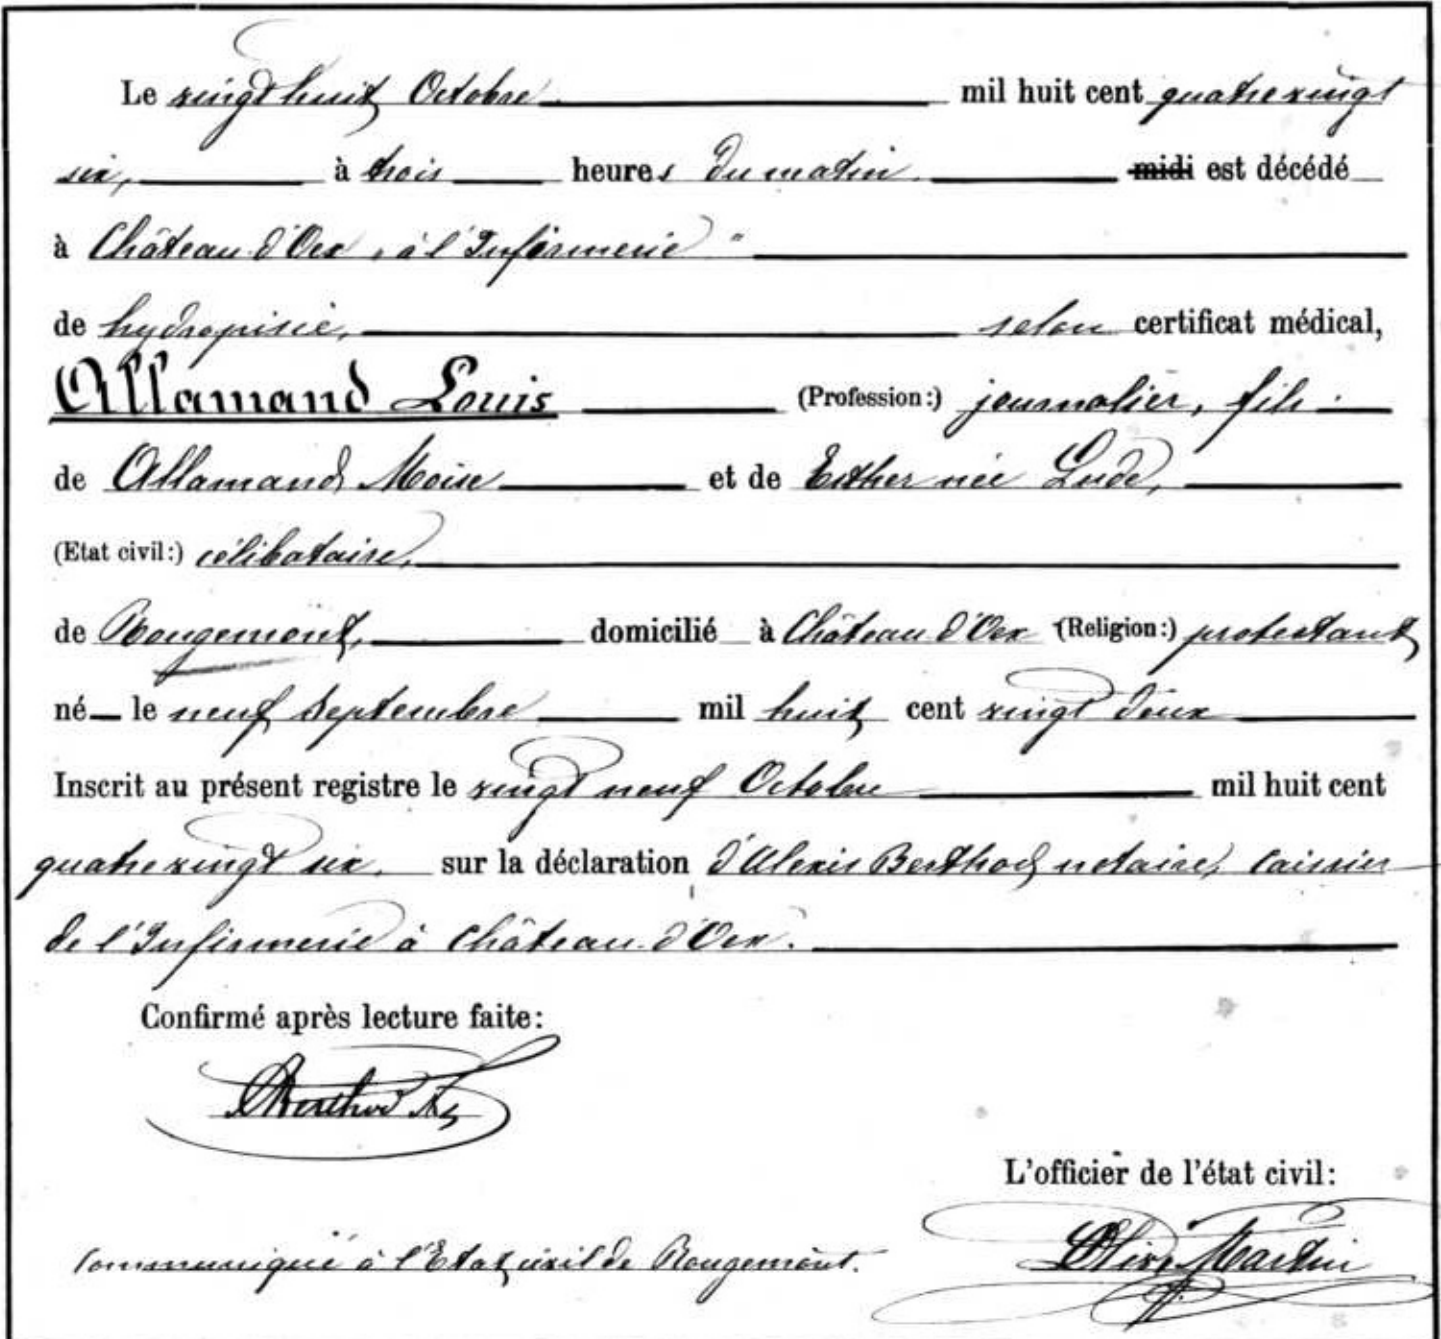 Le vingt huit Octobre mil huit cent quatre vingt
six, à trois heures du matin midi est décédé
à Château d'Oex, à l'Infirmerie"
de hydropisie, selon certificat médical,
Allamand Louis (Profession:) journalier, fils
de Allamand, Moïse et de Esther née Lude,
(Etat civil:) célibataire,
de Rougemont, domicilié à Château d'Oex (Religion:) protestant
né le neuf septembre mil huit cent vingt deux
Inscrit au présent registre le vingt neuf Octobre mil huit cent
quatre vingt six, sur la déclaration d'Alexis Berthod, notaire, caissier
de l'Infirmerie à Château d'Oex.
Confirmé après lecture faite:
Berthod
L'officier de l'état civil:
Communiqué à l'Etat civil de Rougemont. Martin